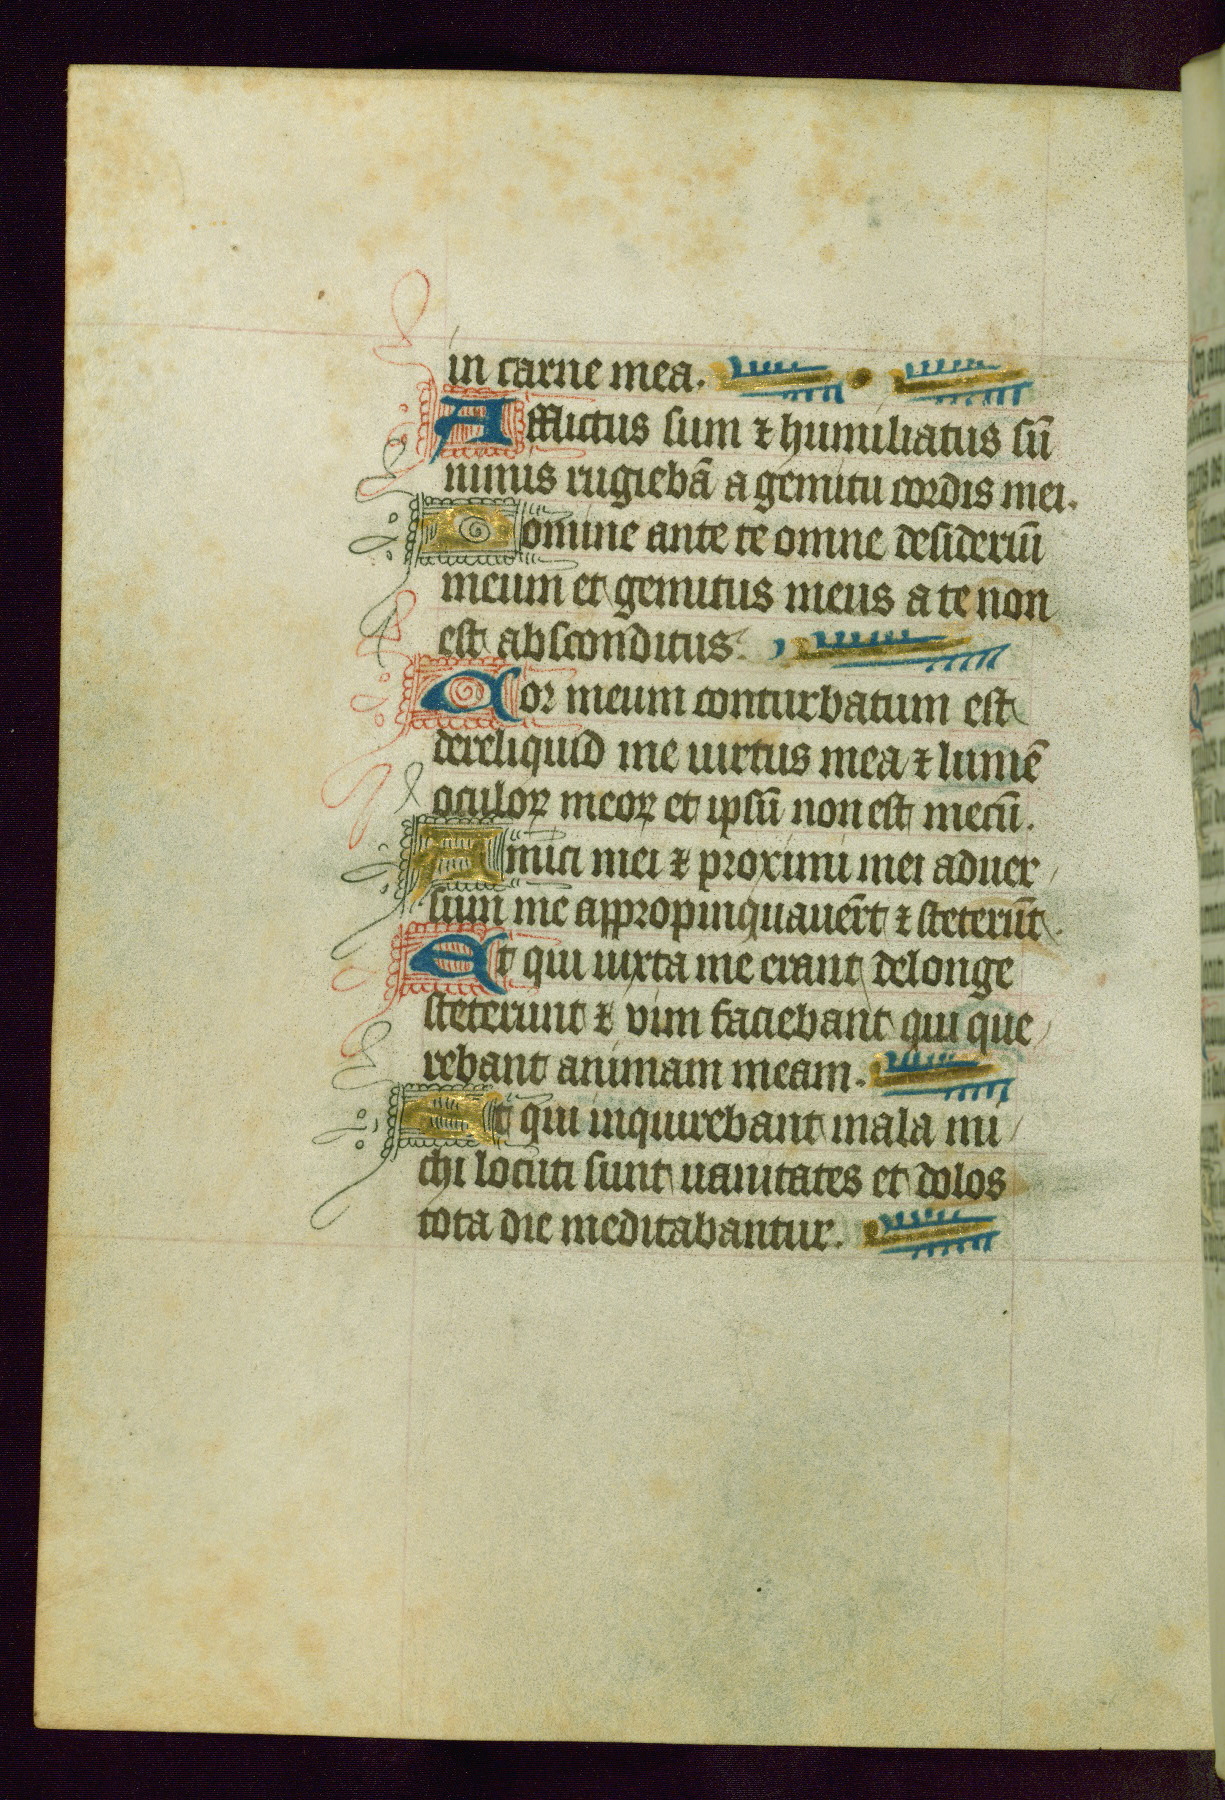 in carne mea.
Afflictus sum ⁊ humiliatus sū
nimis rugiebā a gemitu cordis mei.
Domine ante te omne desideriū
meum et gemitus meus a te non
est absconditus.
Cor meum conturbatum est
dereliquid me uirtus mea ⁊ lumē
oculoꝝ meoꝝ et ipsū non est mecū.
Amici mei ⁊ proximi mei aduer
sum me appropinquauerūt ⁊ steterūt.
Et qui iuxta me erant de longe
steterunt ⁊ vim faciebant qui que
rebant animam meam.
Et qui inquirebant mala mi
chi locuti sunt uanitates et dolos
tota die meditabantur.